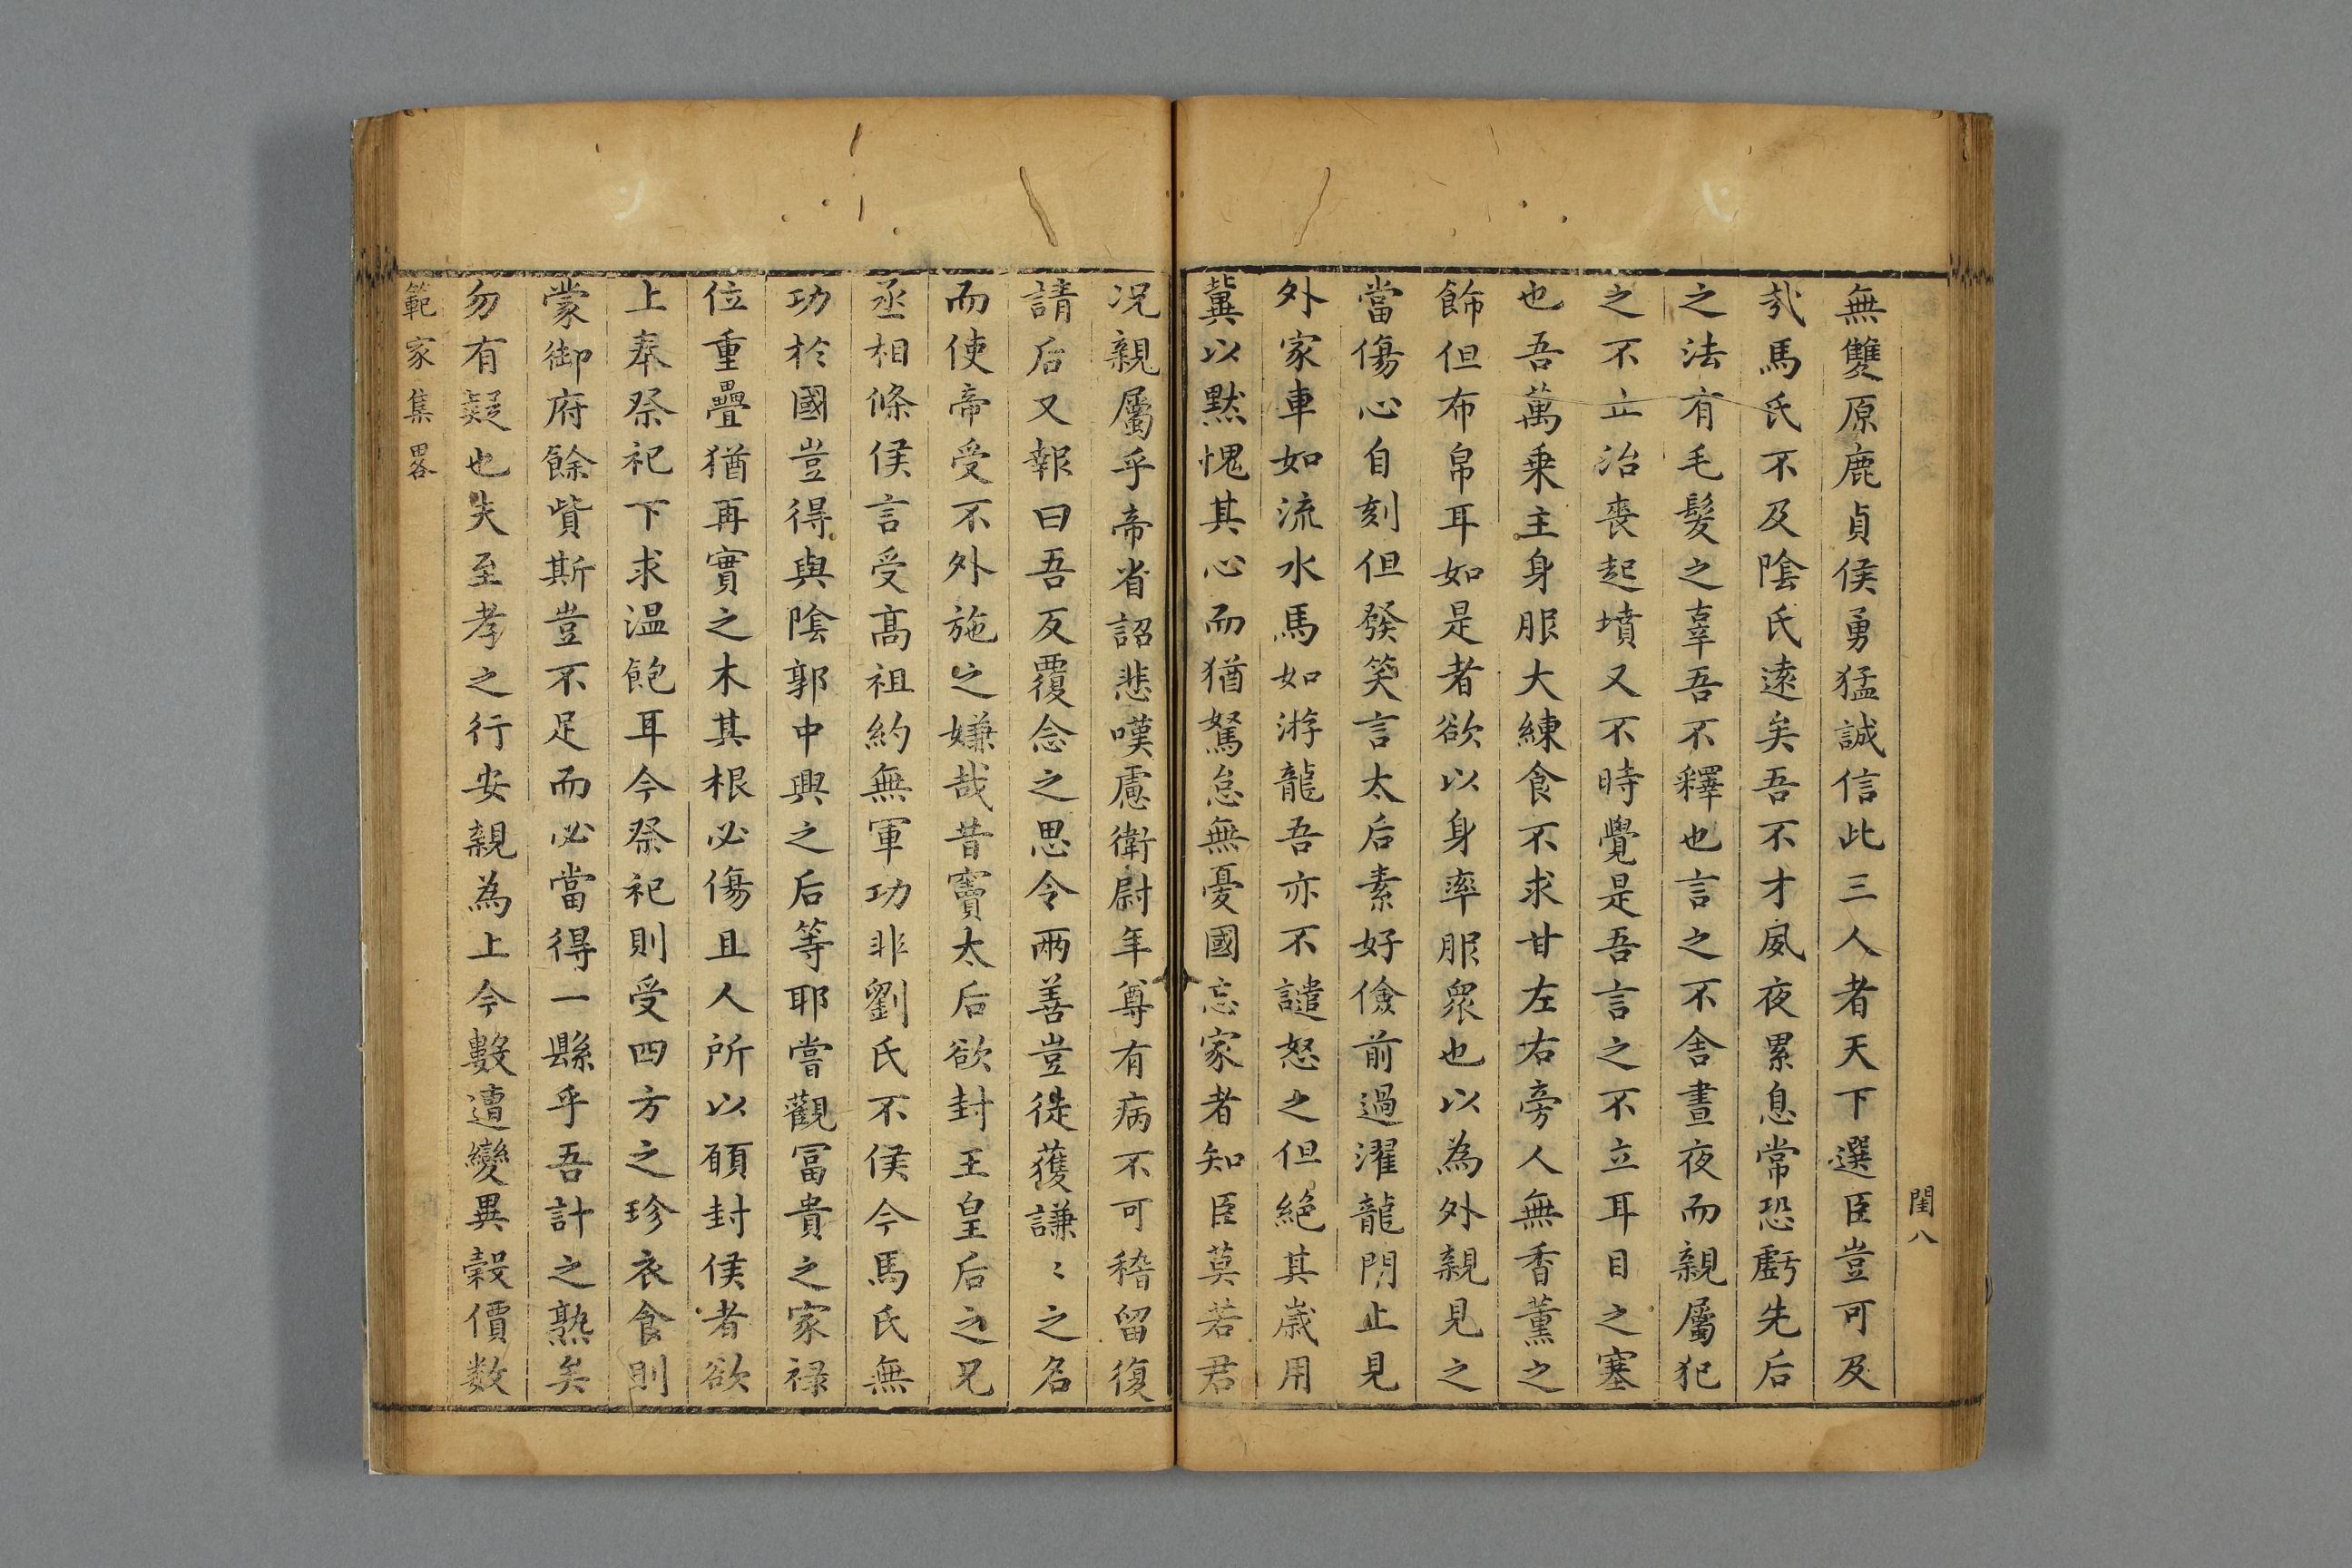 閨八
無雙原鹿貞侯勇猛誠信此三人者天下選臣豈可及
㢤馬氏不及陰氏逺矣吾不才夙夜累息常恐虧先后
之法有毛髮之辠吾不釋也言之不舍晝夜而親屬犯
之不止治喪起墳又不時覺是吾言之不立耳目之塞
也吾萬乗主身服大練食不求甘左右旁人無香薰之
飾但布帛耳如是者欲以身率服衆也以為外親見之
當傷心自刻但發笑言太后素好儉前過濯龍門止見
外家車如流水馬如游龍吾亦不譴怒之但絶其歳用
冀以黙愧其心而猶駑怠無憂國忘家者知臣莫若君
况親屬乎帝省詔悲嘆慮衛尉年尊有病不可稽留復
請后又報曰吾反覆念之思令兩善豈徒獲謙〻之名
而使帝受不外施之嫌哉昔竇太后欲封王皇后之兄
丞相條侯言受髙祖約無軍功非劉氏不侯今馬氏無
功於國豈得與陰郭中興之后等耶嘗觀冨貴之家禄
位重疊猶再實之木其根必傷且人所以願封侯者欲
上奉祭祀下求温飽耳今祭祀則受四方之珍衣食則
蒙御府餘貲斯豈不足而必當得一縣乎吾計之熟矣
勿有疑也夫至孝之行安親為上今數遭變異穀價数
範家集畧